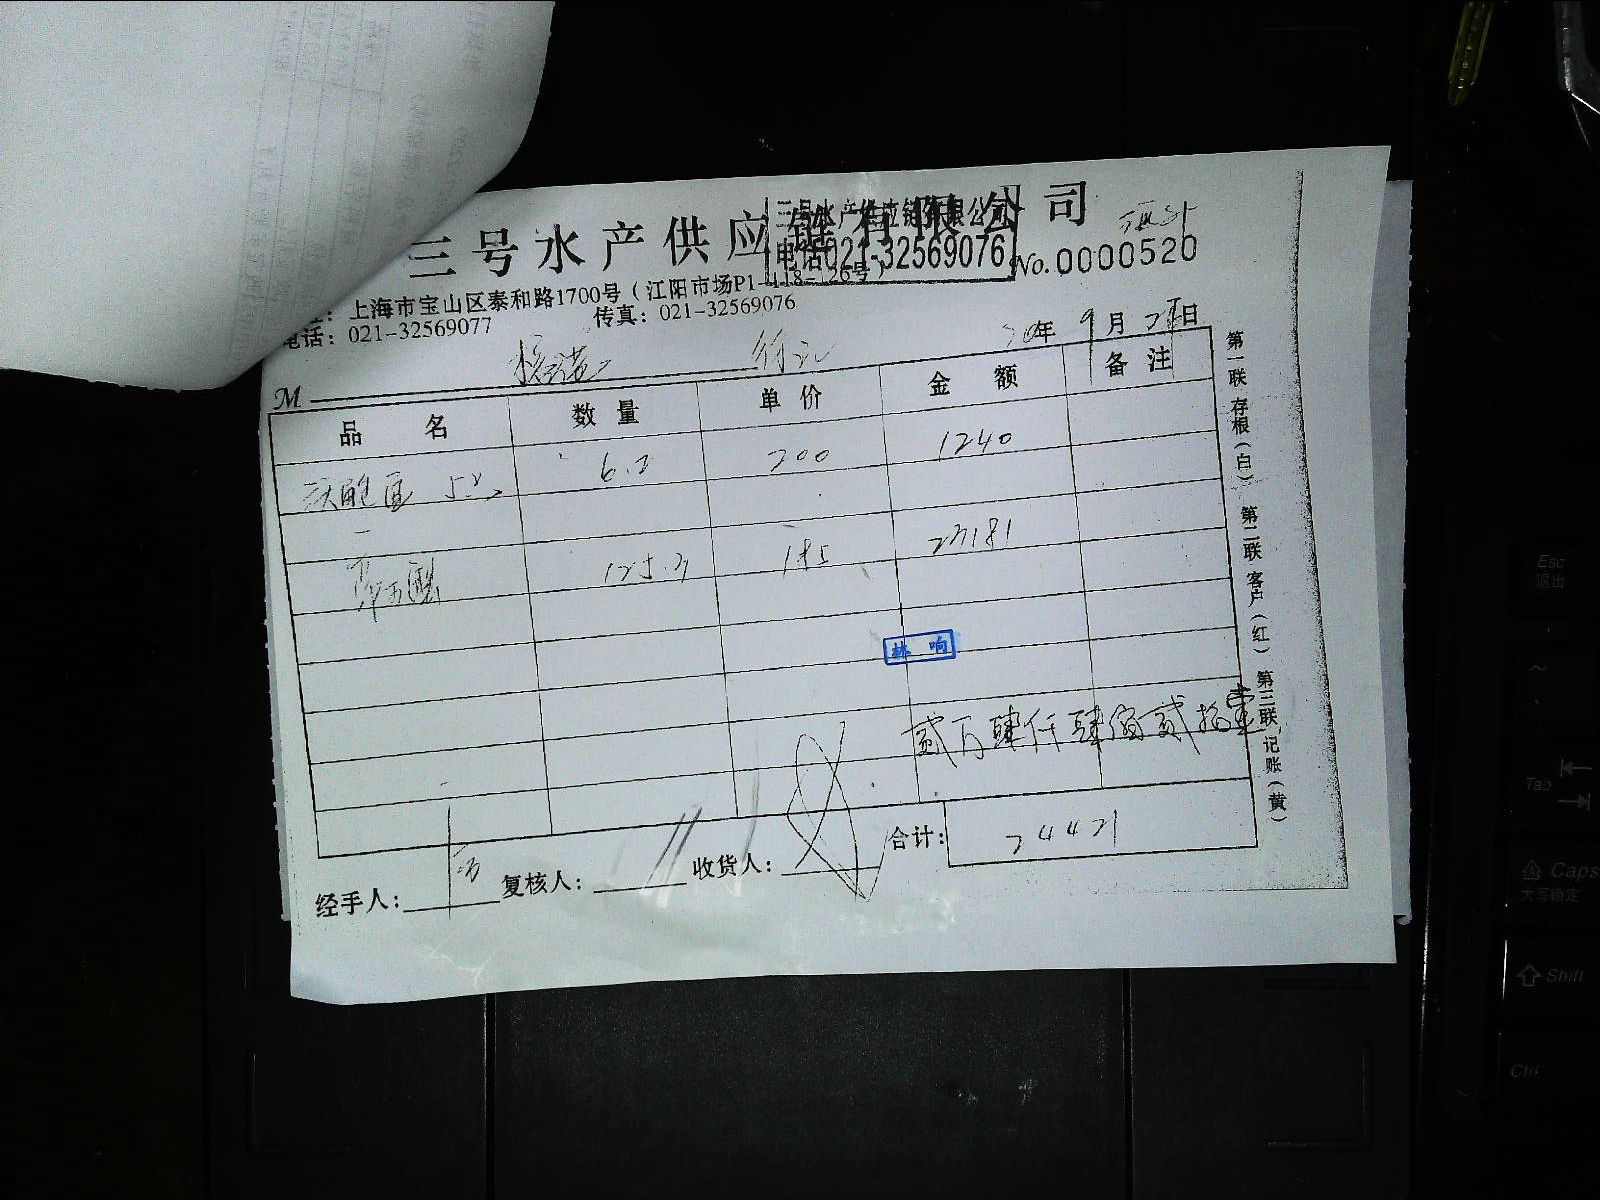 三号水产供应链有限公司
三号水产供应链有限公司
电话021-32569076
No.0000520
上海市宝山区泰和路1700号（江阳市场P1-118-126号）
电话：021-32569077 传真：021-32569076
20年 9月 日
M
品名 数量 单价 金额 备注
6.2 200 1240
125.3 185 23181
林响
贰万肆仟肆佰贰拾壹
合计： 24421
经手人： 复核人： 收货人：
第一联 存根（白） 第二联 客户（红） 第三联 记账（黄）
Esc
退出
~
Tab
Caps
大写锁定
Shift
Ctrl